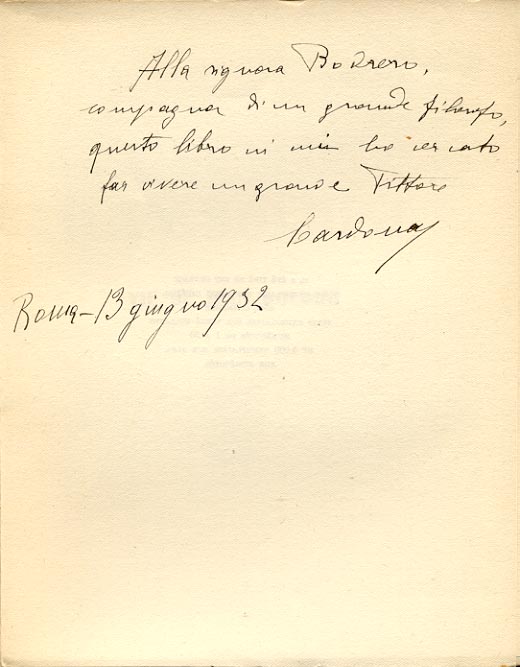 Alla signora Bodrero,
compagna di un grande filosofo,
questo libro in cui ho cercato
far vivere un grande Pittore
Cardona
Roma - 13 giugno 1932